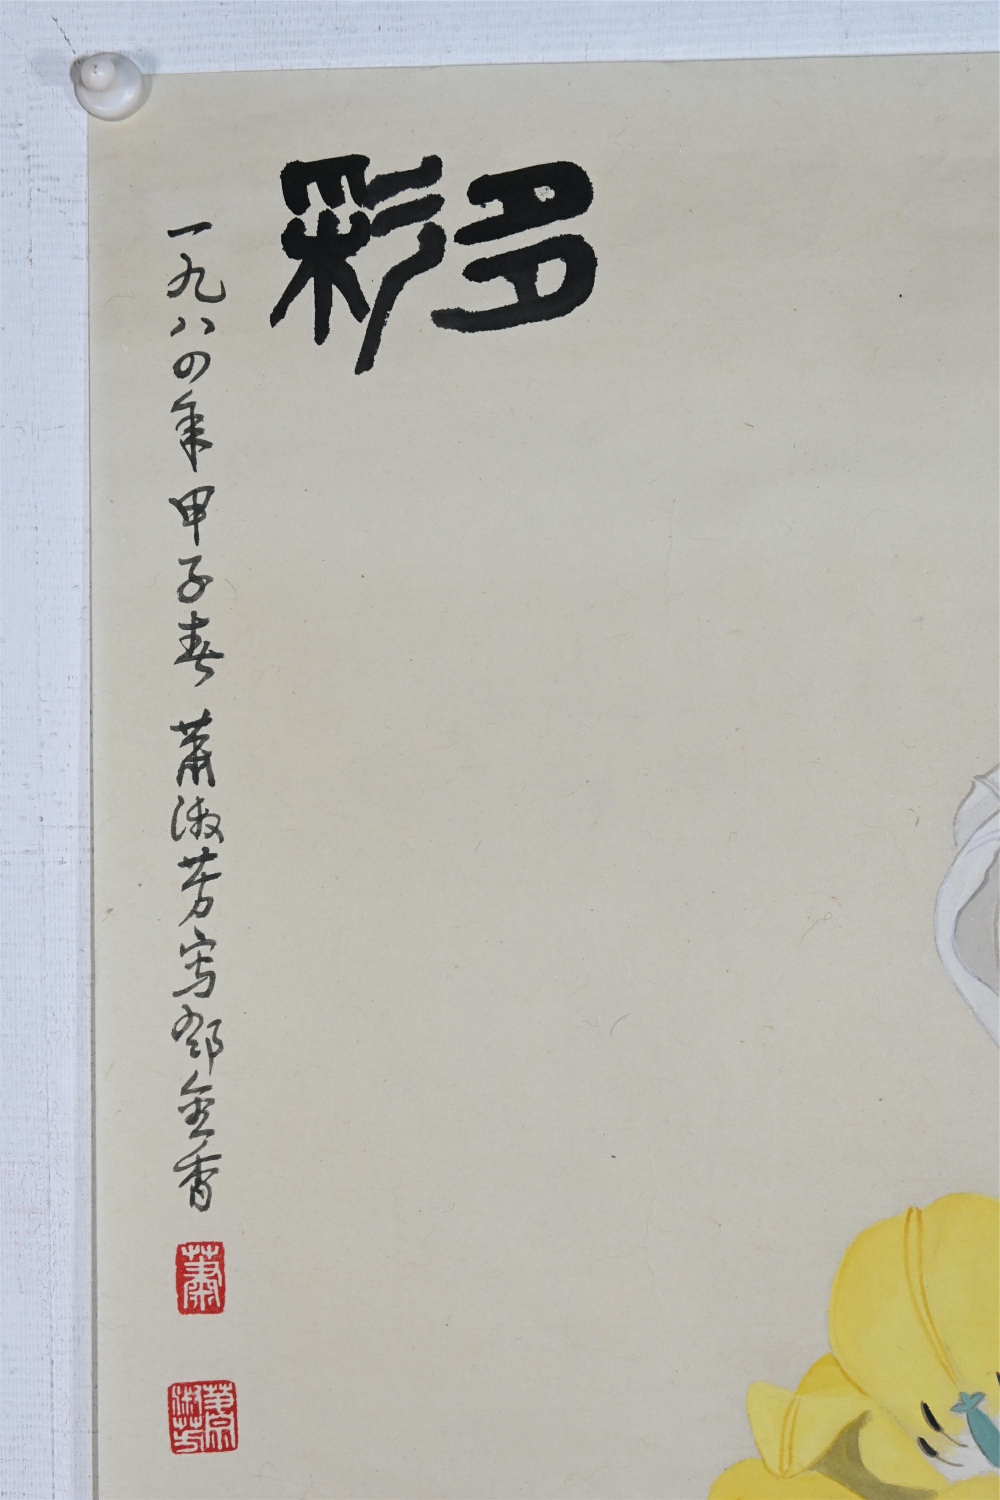 多彩
一九八四年甲子春 萧淑芳写郁金香
萧
萧淑芳